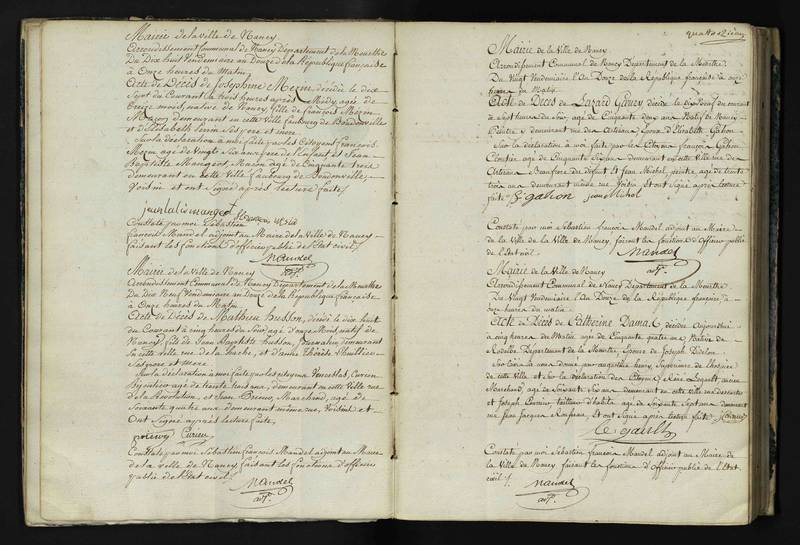 Mairie de la ville de Nancy
Arrondissement Communal de Nancy Département de la Meurthe
Du Dix huit Vendemiaire an Douze de la République française
à Onze heures du Matin
Acte de Décès de Josephine Mozin, décédée le dix
Sept du Courant à trois heures après Midy, agée de
treize mois, native de Nancy, fille de françois
Maçon, demeurant en cette Ville faubourg de Boudonville
et d'Elisabeth ses père et mere
Sur la déclaration à moi faite par les Citoyens françois
agé de Vingt Six ans frere de l'Enfant et Jean
Baptiste Mangeot, Maçon, agé de Cinquante trois
demeurant en cette Ville faubourg de Boudonville,
Voisin et ont Signé après lecture faite
jean batis mangeot
Constaté par moi Sébastien
françois Mandel adjoint au Maire de la Ville de Nancy
faisant les fonctions d'officier public de l'Etat civil
Mandel
adj.
Mairie de la Ville de Nancy
Arrondissement Communal de Nancy Département de la Meurthe
Du Dix Neuf Vendemiaire an Douze de la République française
à Onze heures du Matin
Acte de Décès de Mathieu husson, décédé le dix huit
du Courant à cinq heures du Soir, agé d'onze Mois, natif de
Nancy, fils de Jean Baptiste husson, demeurant
En cette ville rue de la hache, et d'anne Thérèse
Ses père et mere
Sur la déclaration à moi faite par les citoyens Curien
agé de trente trois ans, demeurant en cette Ville rue
de la Révolution, et Jean Marchand, agé de
Soixante quatre ans demeurant même rue, Voisins et
Ont Signé après lecture faite,
Curien
Constaté par moi Sébastien françois Mandel adjoint au Maire
de la ville de Nancy faisant les fonctions d'officier
public de l'Etat civil
Mandel
adj.
Mairie de la Ville de Nancy
Arrondissement Communal de Nancy Département de la Meurthe
Du Vingt Vendemiaire l'An Douze de la République française à onze
heures du Matin
Acte de Décès de Lazard décédé le dix Neuf du courant
à Sept heures du Soir, agé de Cinquante deux ans Natif de Nancy
Peintre y demeurant rue des Artisans Epoux d'Elisabeth Gahon
Sur la déclaration à moi faite par les Citoyens françois Gahon
agé de Cinquante Six ans demeurant en cette Ville rue des
Artisans Beaufrere du défunt Et Jean Michel, peintre agé de trente
trois ans demeurant même rue Voisin Et ont Signé après lecture
faite f. gahon jean Michel
Constaté par moi Sébastien françois Mandel adjoint au Maire
de la Ville de la Ville de Nancy, faisant les fonctions d'Officier public
de l'Etat civil
Mandel
adj.
Mairie de la Ville de Nancy
Arrondissement Communal de Nancy Département de la Meurthe
Du Vingt Vendemiaire l'An Douze de la République française à
onze heures du matin
Acte de Décès de Catherine décédée Aujourd'hui
à cinq heures du Matin agée de Cinquante quatre ans Native de
Département de la Meurthe, Epouse de Joseph Didelon
de cette Ville et Sur la déclaration des Citoyens René Legault, ancien
Marchand, agé de Soixante Six ans demeurant en cette Ville
et Joseph tailleur d'habits agé de Soixante Sept ans demeurant
rue Jean Jacques Rousseau, Et ont Signé après lecture faite
le gault
Constaté par moi Sébastien françois Mandel adjoint au Maire de
la Ville de Nancy faisant les fonctions d'Officier public de l'Etat
civil
Mandel
adj.